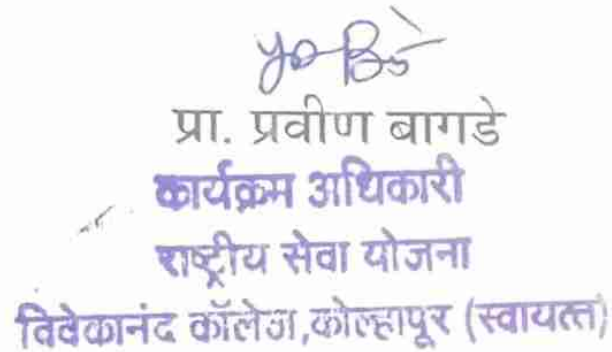 प्रा. प्रवीण बागडे
कार्यक्रम अधिकारी
राष्ट्रीय सेवा योजना
विवेकानंद कॉलेज,कोल्हापूर (स्वायत्त)